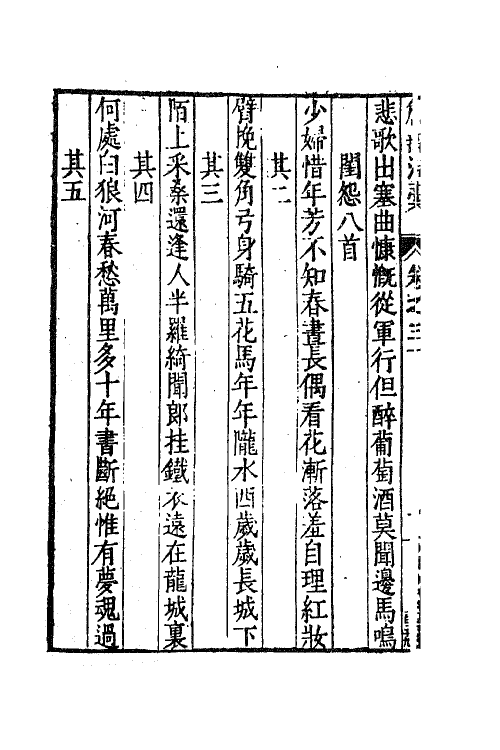 卷之三
悲歌出塞曲慷慨從軍行但醉葡萄酒莫聞邊馬鳴
閨怨八首
少婦惜年芳不知春晝長偶看花漸落羞自理紅妝
其二
臂挽雙角弓身騎五花馬年年隴水西歲歲長城下
其三
陌上采桑還逢人半羅綺聞郎挂鐵衣遠在龍城裏
其四
何處白狼河春愁萬里多十年書斷絕惟有夢魂過
其五